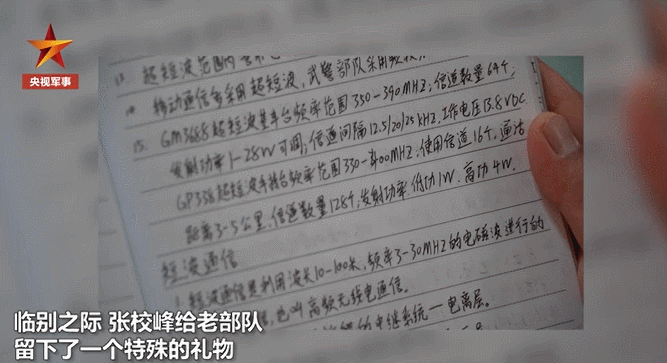 央视军事
13. 超短波范围内
14. 移动通信多采用超短波,武警部队采用
15. GM3688超短波基车台频率范围350-390MHZ;信道数量64个;
发射功率1-28W可调;信道间隔12.5/20/25KHZ.工作电压13.8VDC
GP338超短波手持台频率范围330-400MHZ;使用信道16个,通话
距离3-5公里,信道数量128个,发射功率.低功1W.高功4W.
短波通信
1.短波通信是利用波长10-100米,频率3-30MHZ的电磁波进行的
也叫高频无线电通信.
中继系统一电离层.
临别之际 张校峰给老部队
留下了一个特殊的礼物